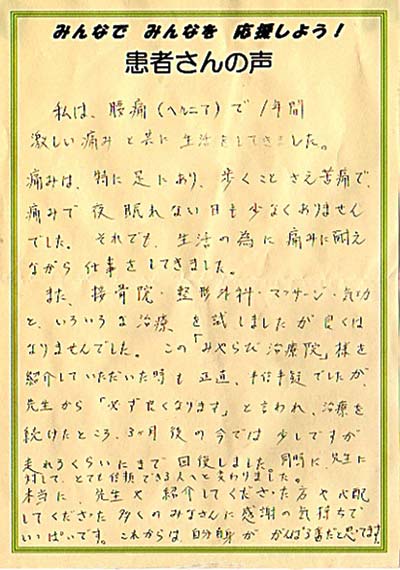 みんなで みんなを 応援しよう！
患者さんの声
私は、腰痛（ヘルニア）で 1年間
激しい痛みと共に生活をしてきました。
痛みは、特に足にあり、歩くことさえ苦痛で、
痛みで夜眠れない日も少なくありません
でした。それでも、生活の為に痛みに耐え
ながら仕事をしてきました。
また、接骨院・整形外科・マッサージ・気功
と、いろいろな治療を試しましたが良くは
なりませんでした。この「みやらび治療院」様を
紹介していただいた時も正直、半信半疑でしたが、
先生から「必ず良くなります」と言われ、治療を
続けたところ、3ヶ月後の今では少しですが
走れるくらいにまで回復しました。同時に、先生に
対して、とても信頼できる人へと変わりました。
本当に、先生や紹介してくださった方や心配
してくださった多くのみなさんに感謝の気持ちで
いっぱいです。これからは自分自身ががんばる番だと思ってます。